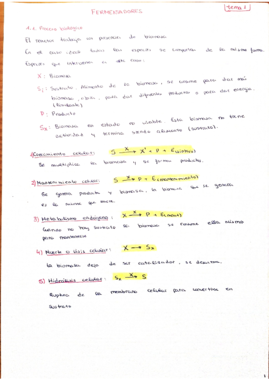 TEMA 1
FERMENTADORES
1.1 Proceso biológico
El reactor trabaja un proceso de biomasa.
En el caso ideal todas las especies se comportan de la misma forma.
Especies que intervienen en este caso:
X: Biomasa
S: Sustrato. Alimento de la biomasa, se consume para dar más
biomasa, para dar algunos productos o para dar energía.
(Sustrato)
P: Producto
Biomasa en estado no viable. Esta biomasa no tiene
actividad y biomasa siendo alimento (sustrato).
1) Crecimiento celular: S X→ X + P + E
Se multiplica la biomasa y se forma producto.
2) Mantenimiento celular: S X→ P + E
Se genera producto y biomasa, la biomasa que se genera
es la misma que muere.
3) Metabolismo endógeno: X → P + E
Cuando no hay sustrato la biomasa se consume ella misma
para mantenerse
4) Muerte o lisis celular: X → S
La biomasa deja de ser catalizador, se destruye.
5) Hidrólisis celular: S X→ S
Ruptura de la membrana celular para convertirse en
sustrato